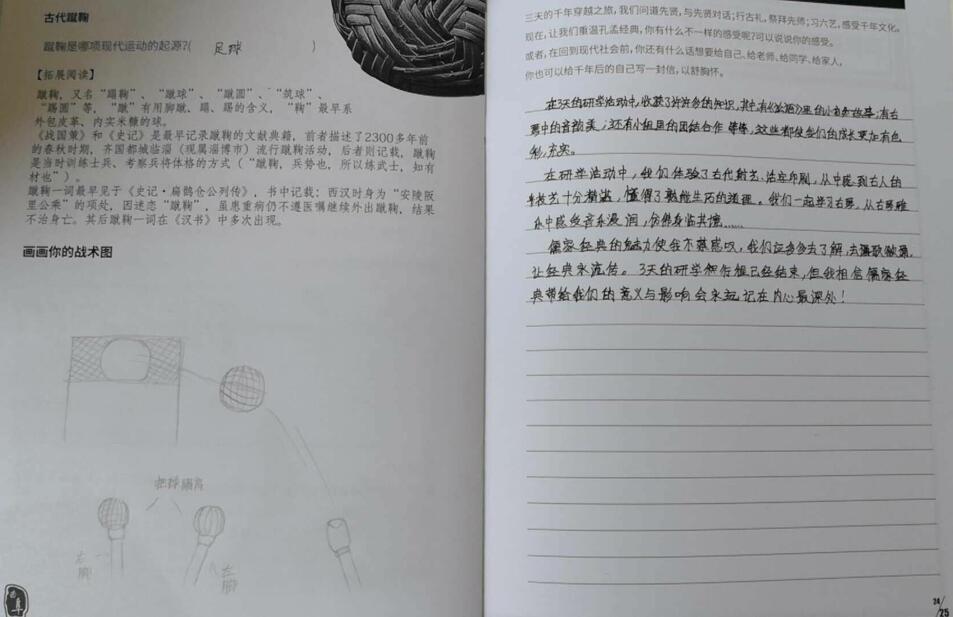 古代蹴鞠
蹴鞠是哪项现代运动的起源?( 足球 )
【拓展阅读】
蹴鞠，又名“蹋鞠”、“蹴球”、“蹴圆”、“筑球”、
“踢圆”等，“蹴”有用脚蹴、蹋、踢的含义，“鞠”最早系
外包皮革、内实米糠的球。
《战国策》和《史记》是最早记录蹴鞠的文献典籍，前者描述了2300多年前
的春秋时期，齐国都城临淄（现属淄博市）流行蹴鞠活动，后者则记载，蹴鞠
是当时训练士兵、考察兵将体格的方式（“蹴鞠，兵势也，所以练武士，知有
材也”）。
蹴鞠一词最早见于《史记·扁鹊仓公列传》，书中记载：西汉时身为“安陵阪
里公乘”的项处，因迷恋“蹴鞠”，虽患重病仍不遵医嘱继续外出蹴鞠，结果
不治身亡。其后蹴鞠一词在《汉书》中多次出现。
画画你的战术图
把球踢高
左
脚
右
脚
三天的千年穿越之旅，我们问道先贤，与先贤对话；行古礼，祭拜先师；习六艺，感受千年文化。
现在，让我们重温孔孟经典，你有什么不一样的感受呢?可以说说你的感受。
或者，在回到现代社会前，你还有什么话想要给自己、给老师、给同学、给家人，
你也可以给千年后的自己写一封信，以舒胸怀。
在3天的研学活动中，收获了许许多多的知识，其中有《论语》里的小奇妙故事；有古
琴中的音韵美；还有小组里的团结合作等等，这些都使我们的成长更加有色
彩，充实。
在研学活动中，我们体验了古代射艺、活字印刷，从中感到古人的
技艺十分精湛，懂得了熟能生巧的道理。我们一起学习古琴，从古琴雅
乐中感受音乐浸润，仿佛身临其境……
儒家经典的魅力使我不禁感叹，我们应多多去了解，去
让经典永流传。3天的研学旅行虽已经结束，但我相信儒家经
典带给我们的意义与影响会永远记在内心最深处！
24
25